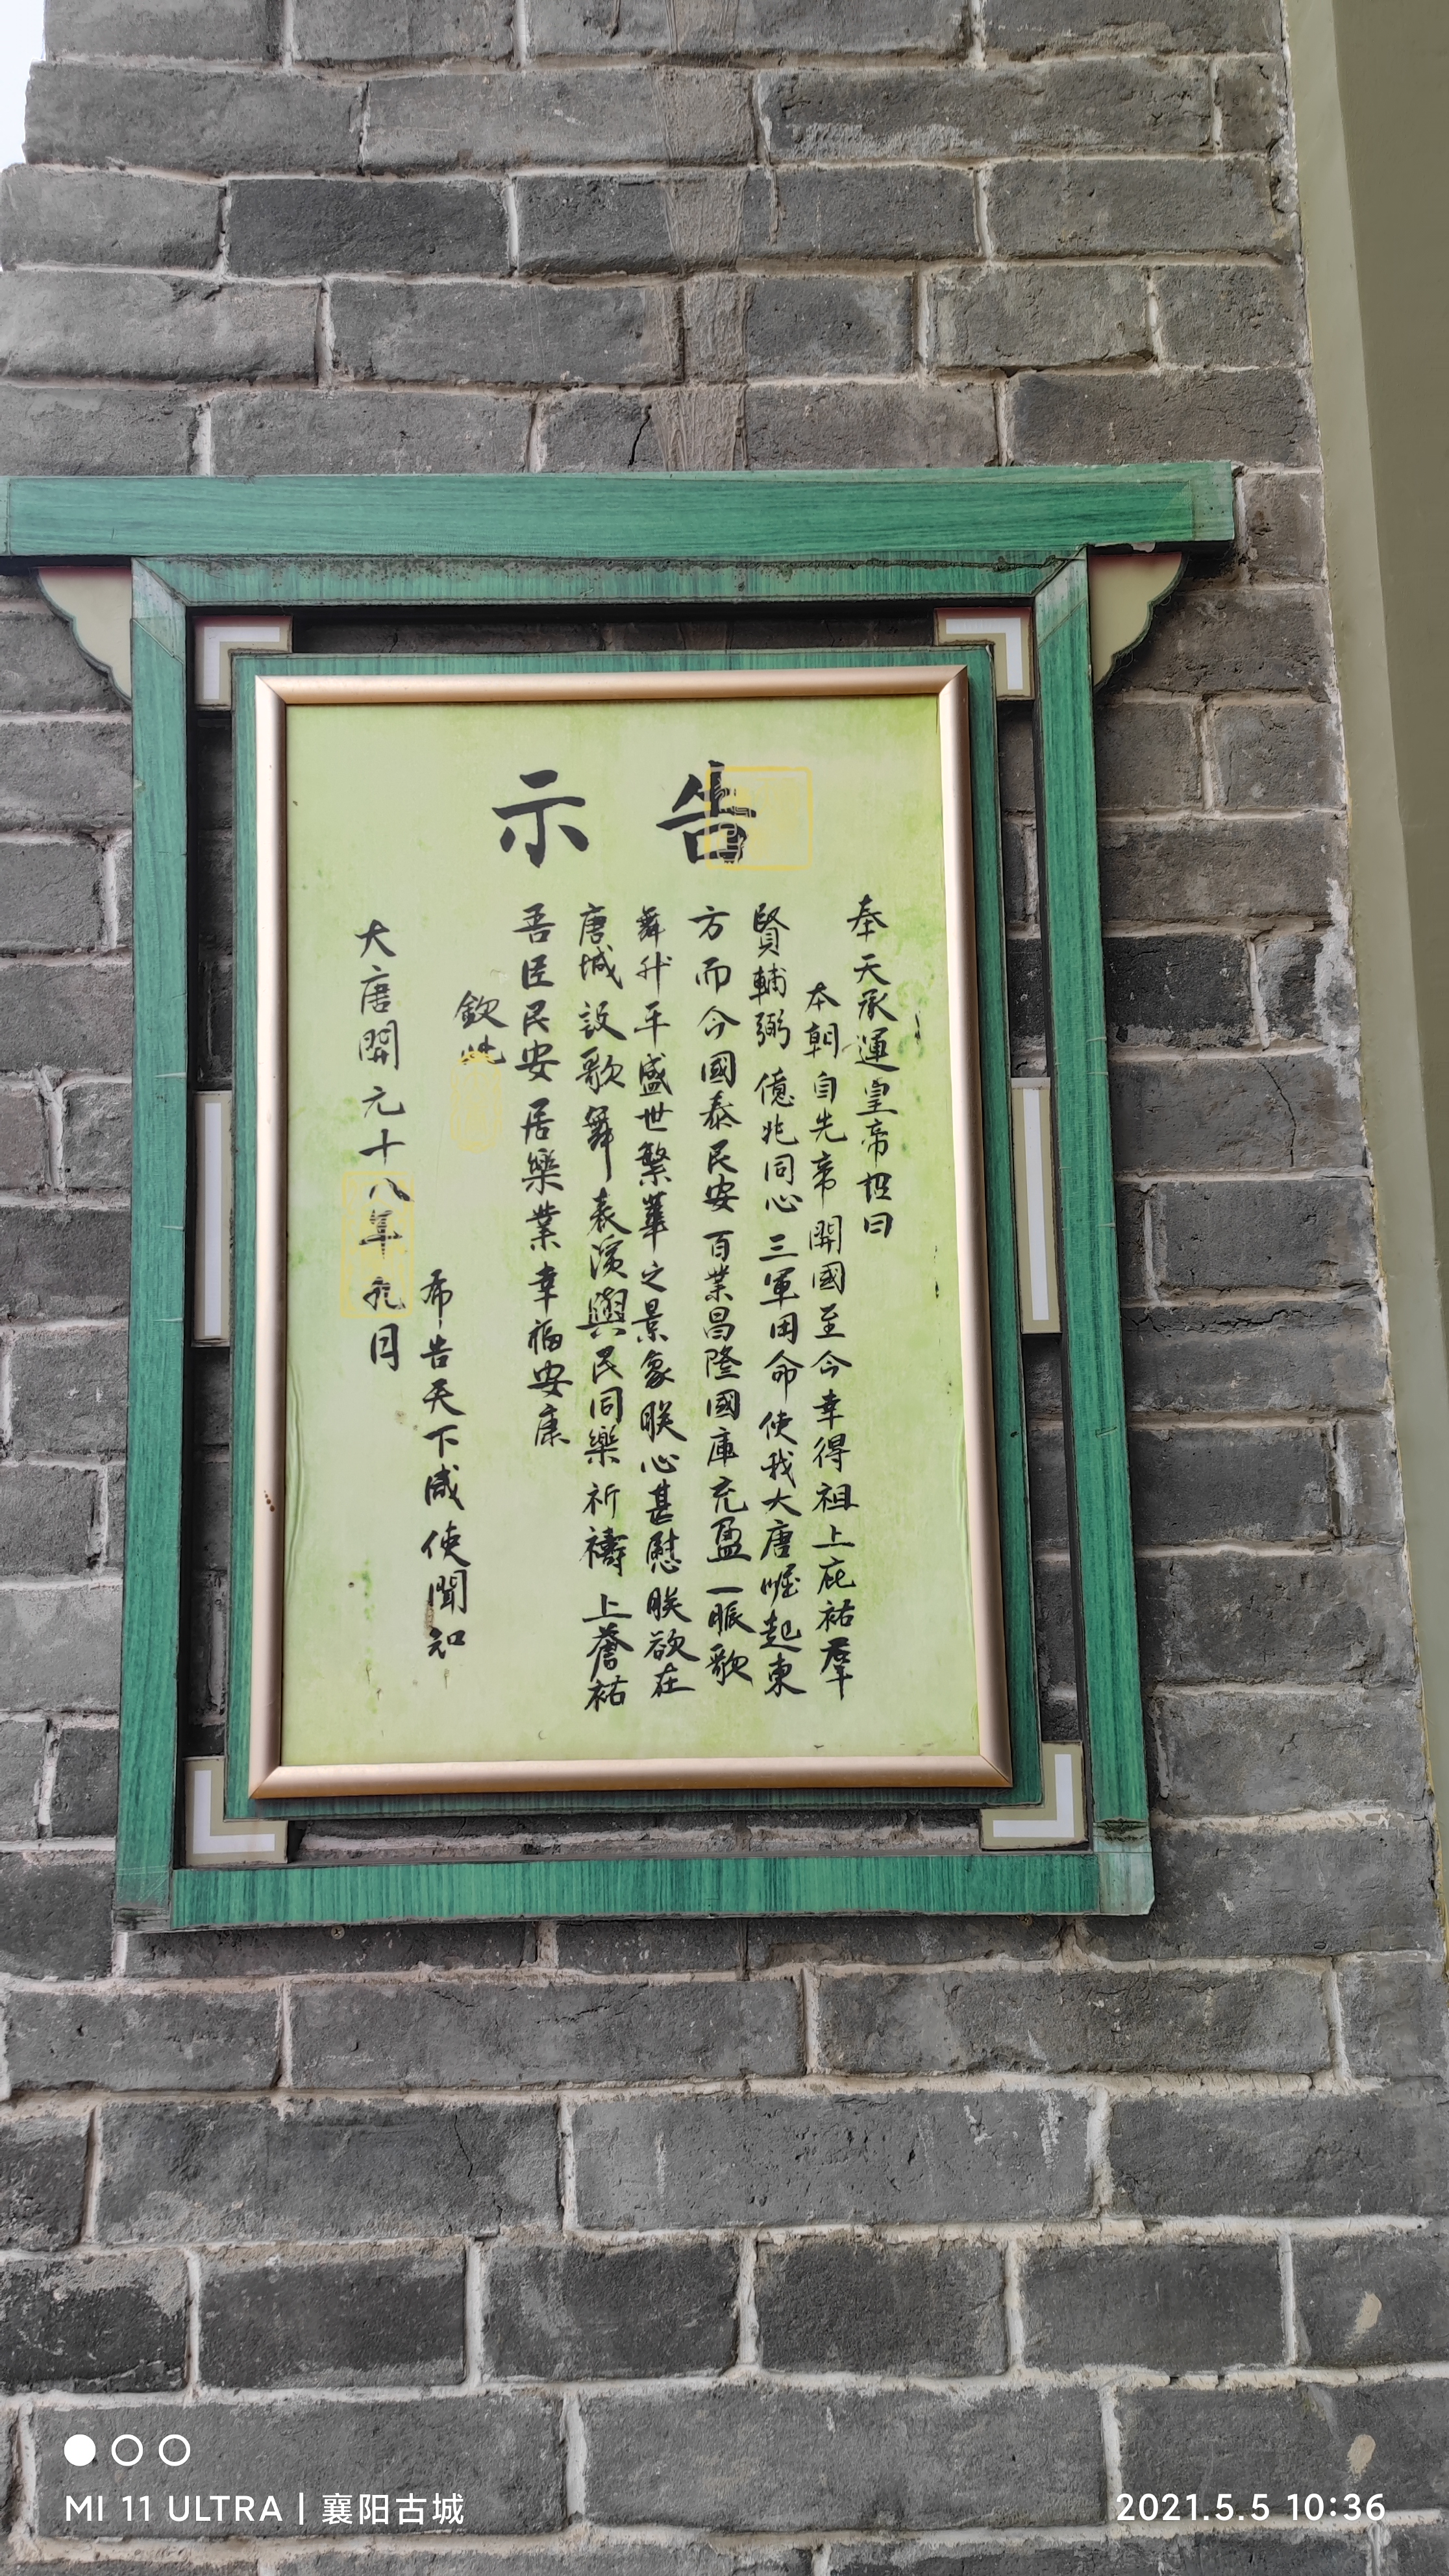 告示
奉天承運皇帝招曰
本朝自先帝開國至今幸得祖上庇祐羣
賢輔弼億兆同心三軍用命使我大唐崛起東
方而今國泰民安百業昌隆國庫充盈一眽歌
舞升平盛世繁華之景象朕心甚慰朕欲在
唐城設歌舞表演與民同樂祈禱上蒼祐
吾臣民安居樂業幸福安康
欽此
布告天下咸使聞知
大唐開元十八年九月
MI 11 ULTRA | 襄阳古城
2021.5.5 10:36